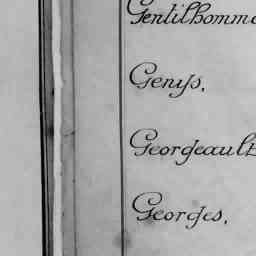 Gentilhomme
Genys.
Georgeault
Georges.